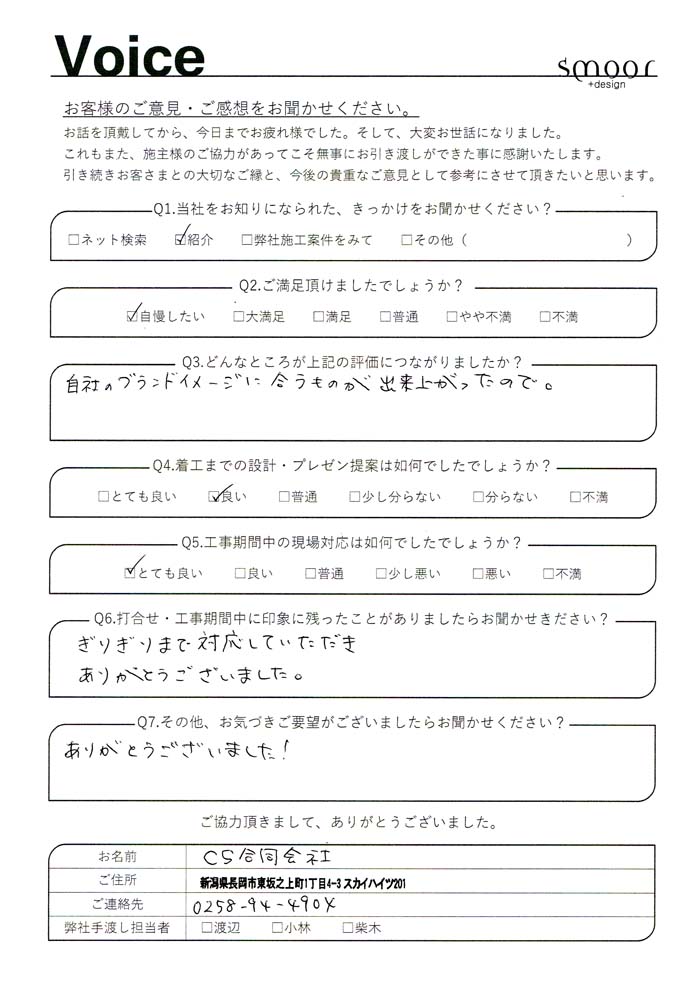 Voice
smoor
+design
お客様のご意見・ご感想をお聞かせください。
お話を頂戴してから、今日までお疲れ様でした。そして、大変お世話になりました。
これもまた、施主様のご協力があってこそ無事にお引き渡しができた事に感謝いたします。
引き続きお客さまとの大切なご縁と、今後の貴重なご意見として参考にさせて頂きたいと思います。
Q1.当社をお知りになられた、きっかけをお聞かせください？
□ネット検索 ☑紹介 □弊社施工案件をみて □その他（ ）
Q2.ご満足頂けましたでしょうか？
☑自慢したい □大満足 □満足 □普通 □やや不満 □不満
Q3.どんなところが上記の評価につながりましたか？
自社のブランドイメージに合うものが出来上がったので。
Q4.着工までの設計・プレゼン提案は如何でしたでしょうか？
□とても良い ☑良い □普通 □少し分らない □分らない □不満
Q5.工事期間中の現場対応は如何でしたでしょうか？
☑とても良い □良い □普通 □少し悪い □悪い □不満
Q6.打合せ・工事期間中に印象に残ったことがありましたらお聞かせきださい？
ぎりぎりまで対応していただき
ありがとうございました。
Q7.その他、お気づきご要望がございましたらお聞かせください？
ありがとうございました！
ご協力頂きまして、ありがとうございました。
お名前 CS合同会社
ご住所 新潟県長岡市東坂之上町1丁目4-3 スカイハイツ201
ご連絡先 0258-94-4904
弊社手渡し担当者 □渡辺 □小林 □柴木